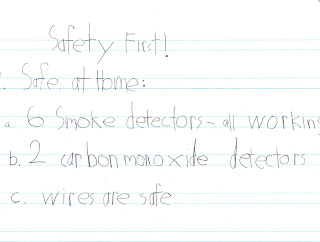 Safety First!
. Safe at Home:
a. 6 Smoke detectors - all working
b. 2 carbon monoxide detectors
c. wires are safe